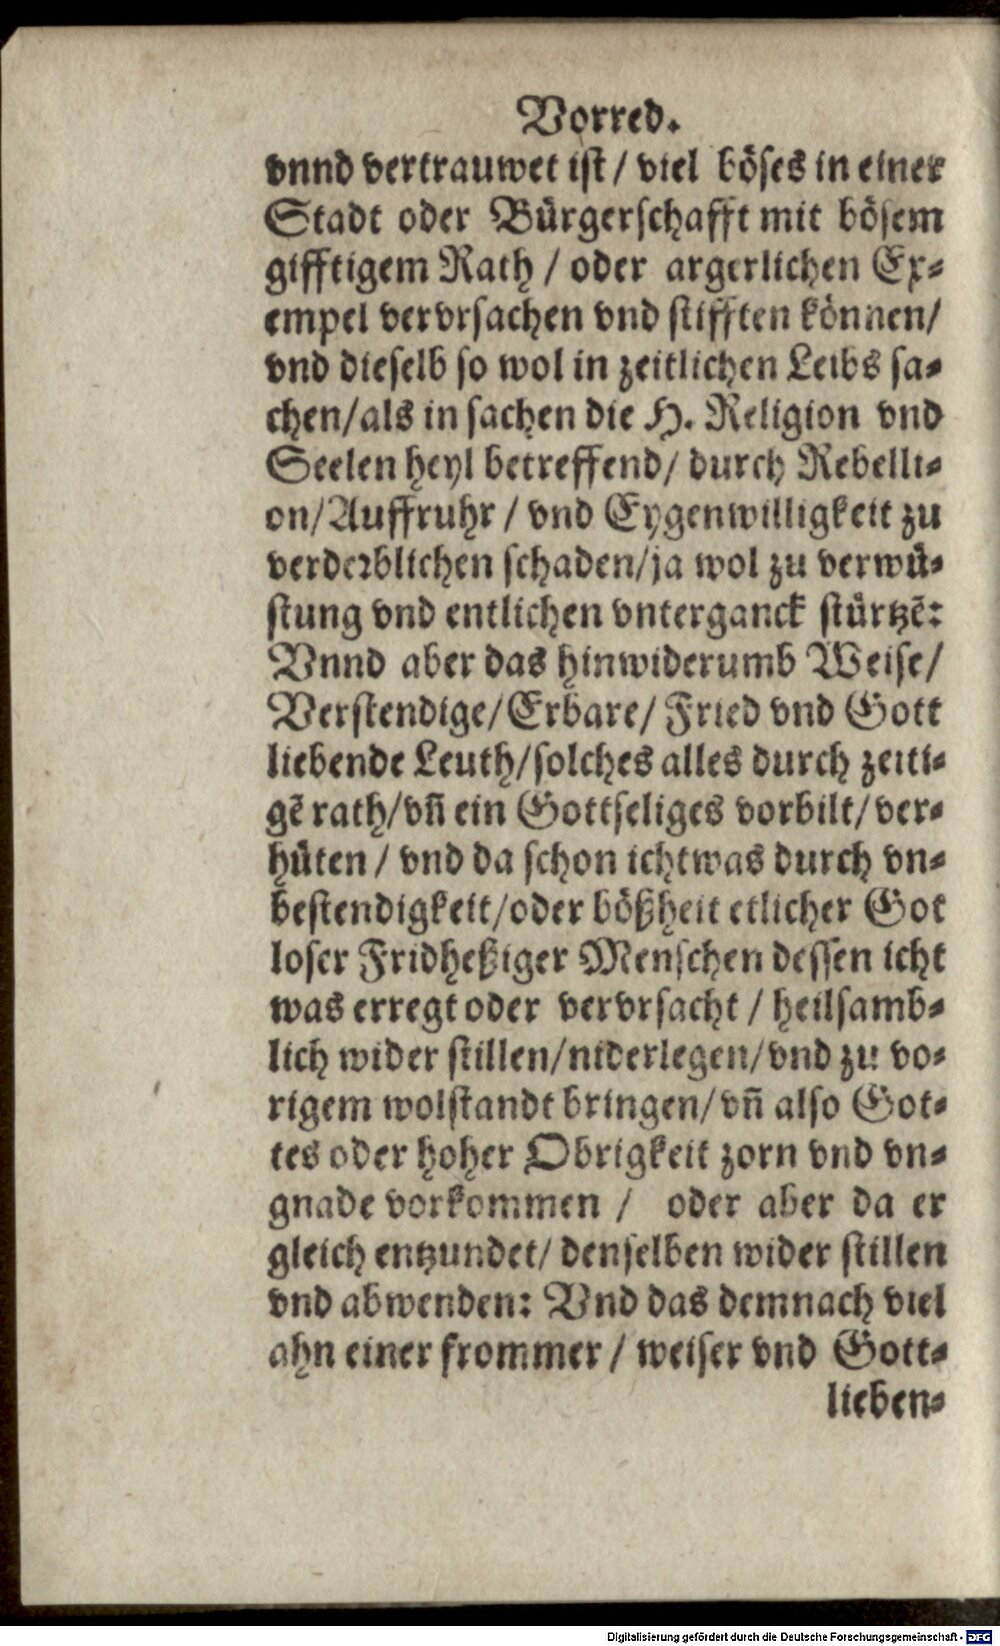 Vorred.
vnnd vertrauwet ist / viel böses in einer
Stadt oder Bürgerschafft mit bösem
gifftigem Rath / oder argerlichen Ex-
empel vervrsachen vnd stifften können/
vnd dieselb so wol in zeitlichen Leibs sa-
chen/als in sachen die H. Religion vnd
Seelen heyl betreffend/ durch Rebelli-
on/Auffruhr / vnd Eygenwilligkeit zu
verderblichen schaden/ja wol zu verwü-
stung vnd entlichen vnterganck stürtzē:
Vnnd aber das hinwiderumb Weise/
Verstendige/Erbare/ Fried vnd Gott
liebende Leuth/solches alles durch zeiti-
gē rath/vñ ein Gottseliges vorbilt/ver-
hüten / vnd da schon ichtwas durch vn-
bestendigkeit/oder bößheit etlicher Got
loser Fridheßiger Menschen dessen icht
was erregt oder vervrsacht / heilsamb-
lich wider stillen/niderlegen/vnd zu vo-
rigem wolstandt bringen/vñ also Got-
tes oder hoher Obrigkeit zorn vnd vn-
gnade vorkommen / oder aber da er
gleich entzundet/ denselben wider stillen
vnd abwenden: Vnd das demnach viel
ahn einer frommer / weiser vnd Gott-
lieben-
Digitalisierung gefördert durch die Deutsche Forschungsgemeinschaft - DFG